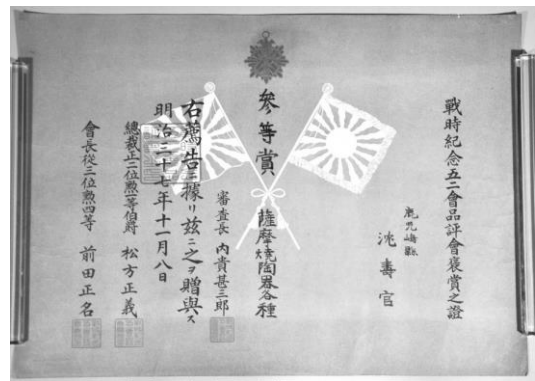 戰時紀念五二會品評會褒賞之證
鹿兒嶋縣
沈壽官
參等賞 薩摩燒陶器各種
審査長 內貴甚三郎
右薦告ニ據リ茲ニ之ヲ贈與ス
明治二十七年十一月八日
總裁正二位勲一等伯爵 松方正義
會長從三位勲四等 前田正名